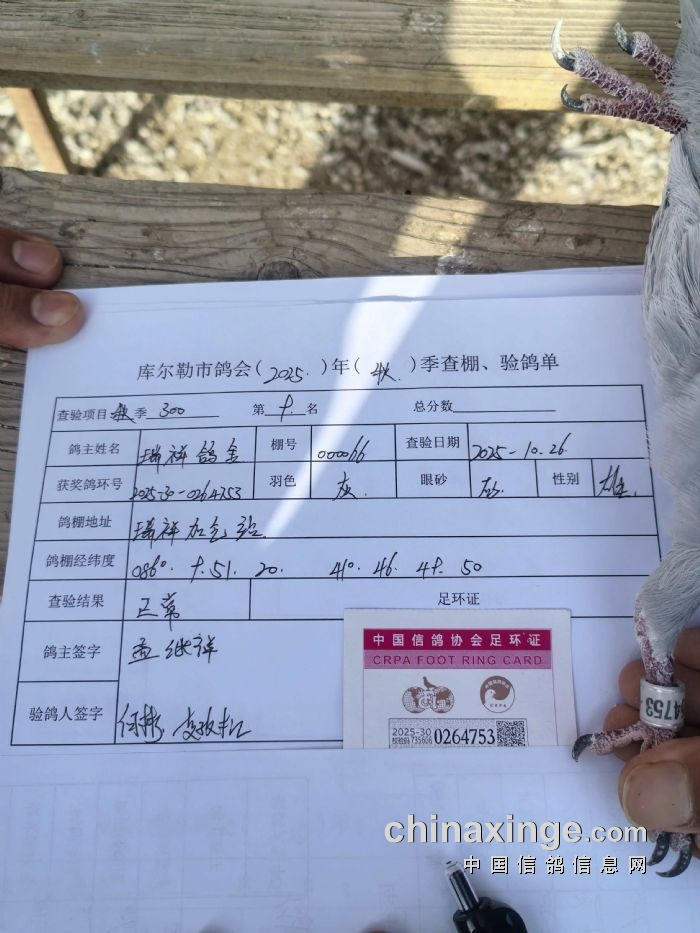 库尔勒市鸽会(2025.)年(秋.)季查棚、验鸽单
查验项目 秋 季 300 第 名 总分数
鸽主姓名 瑞祥鸽舍 棚号 000066 查验日期 2025-10-26.
获奖鸽环号 2025-30-0264753 羽色 灰. 眼砂 砂. 性别 雄.
鸽棚地址 瑞祥加气站.
鸽棚经纬度 086°. 51. 20. 41°. 46. 50
查验结果 正常 足环证
鸽主签字 孟继祥
验鸽人签字
中国信鸽协会足环证
CRPA FOOT RING CARD
2025-30
校验码 735606 0264753
64753
chinaxinge.com
中国信鸽信息网